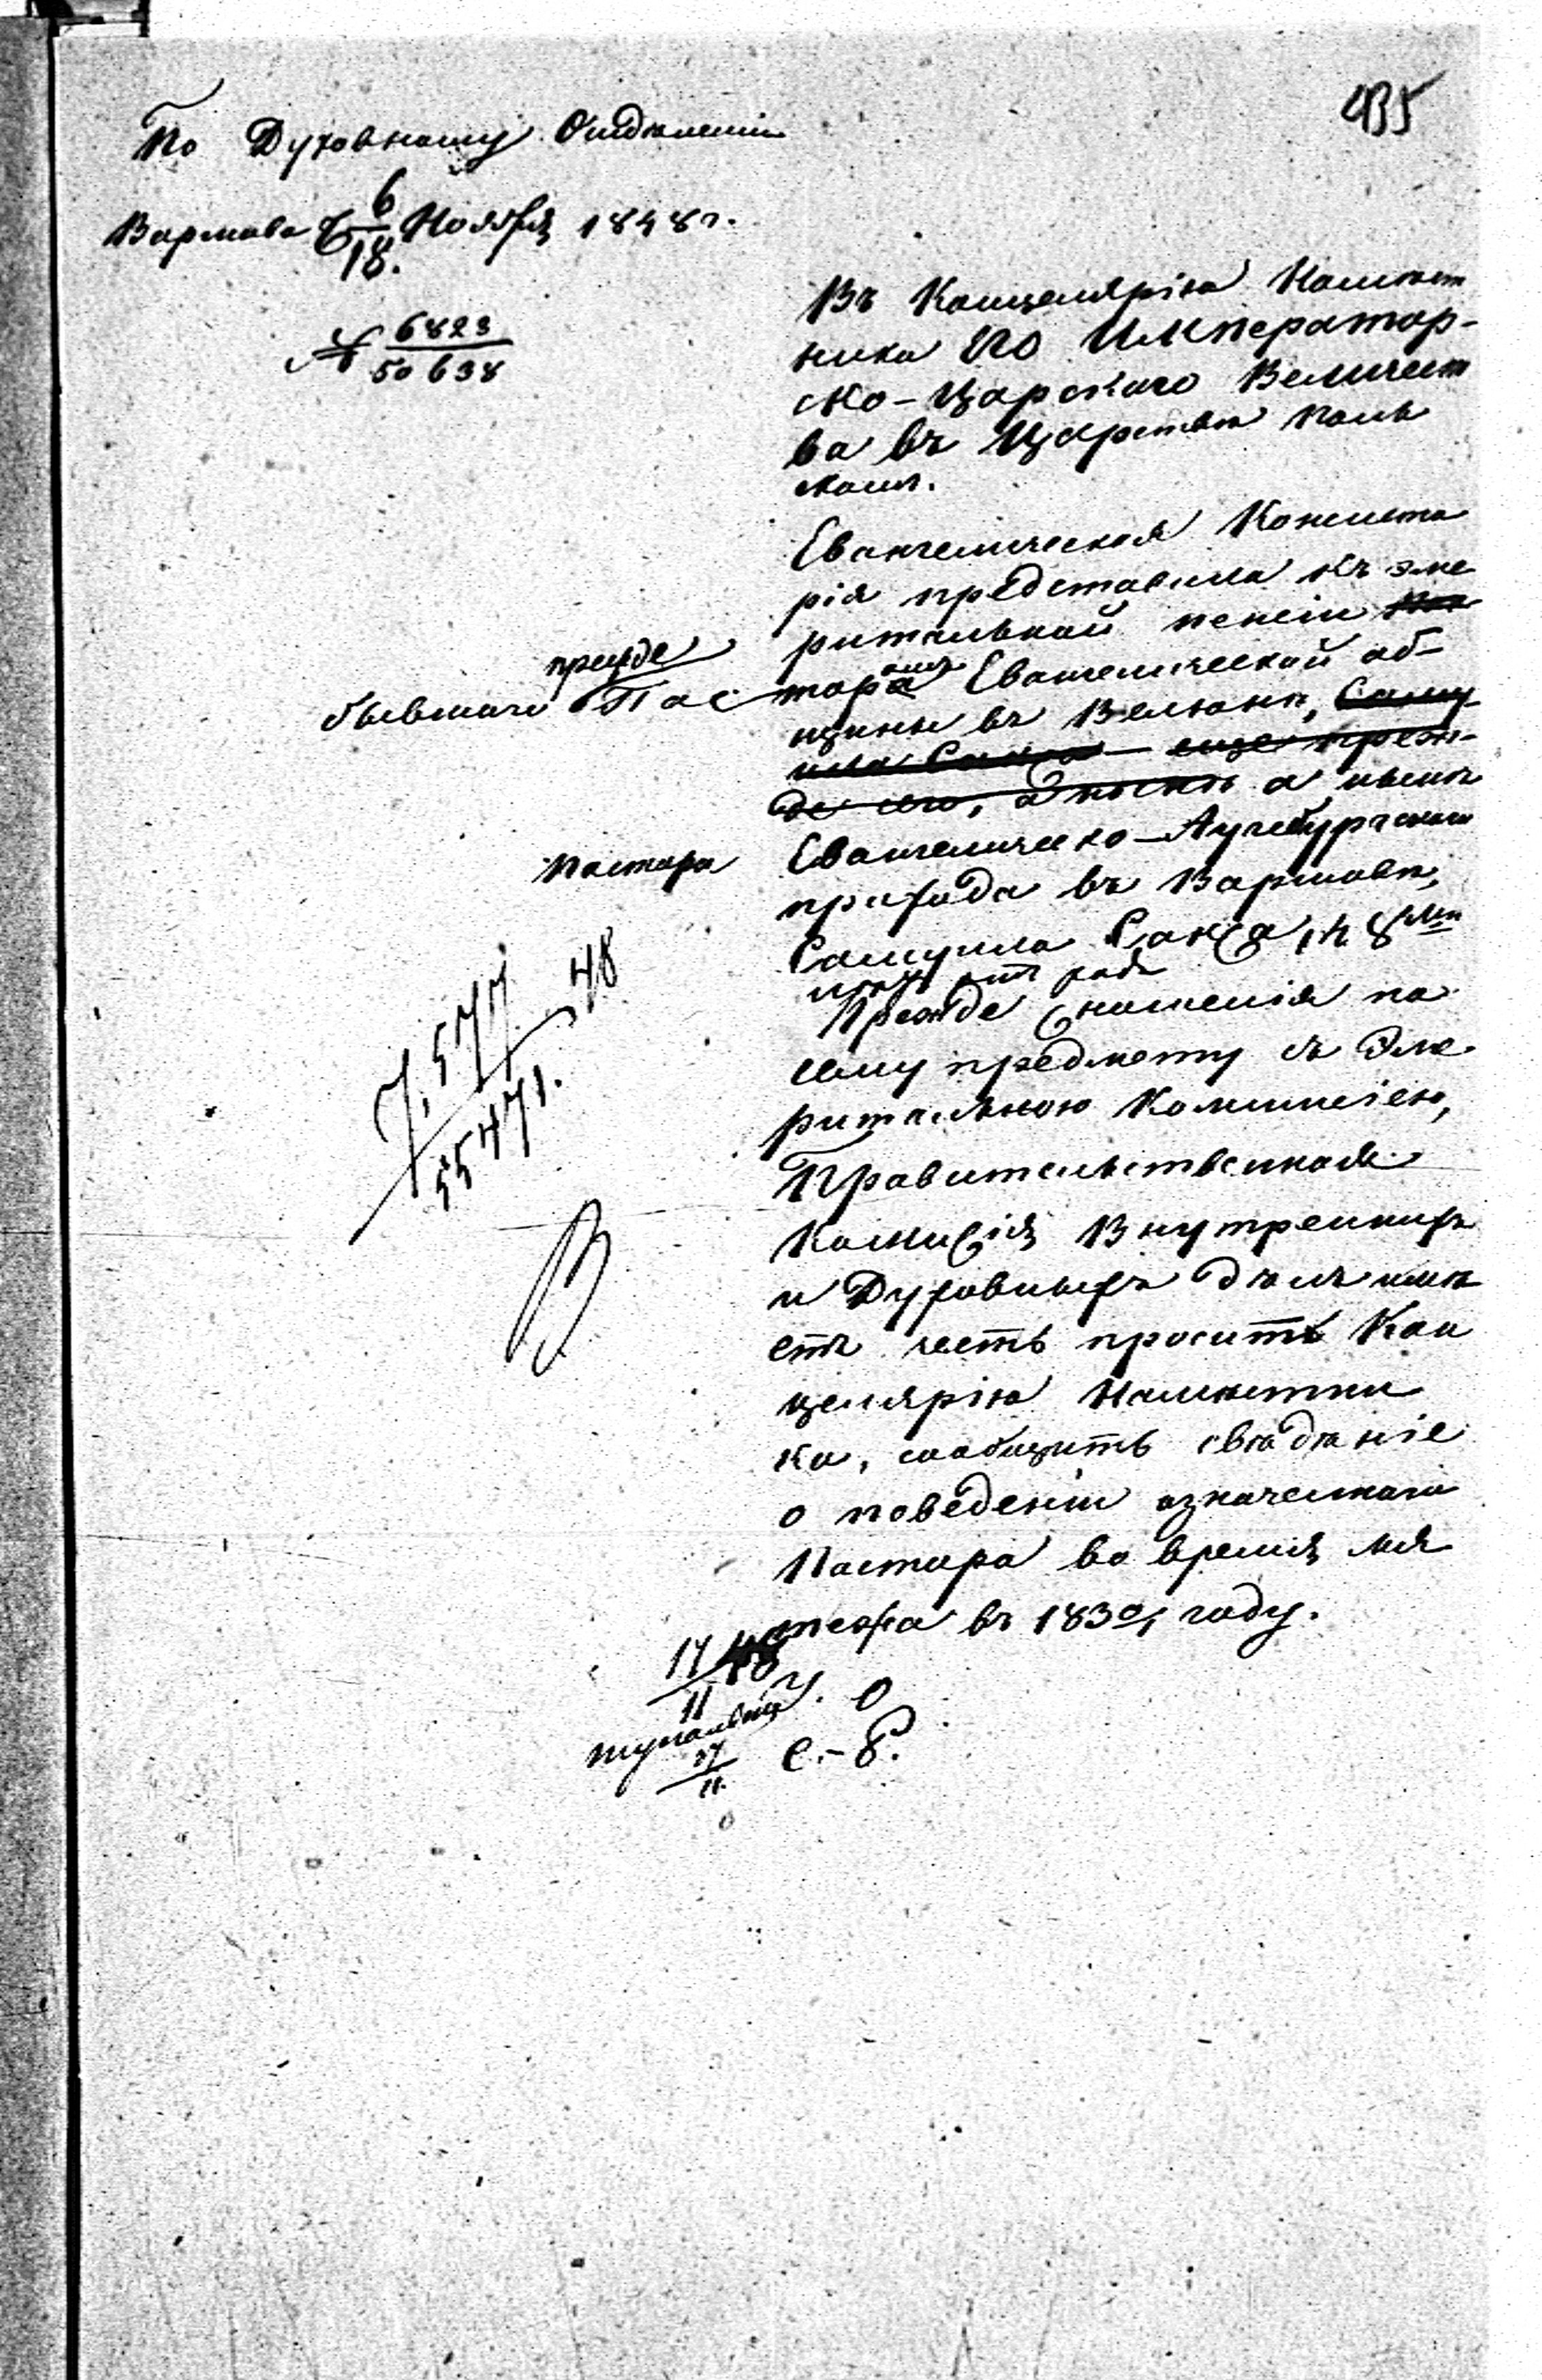 435
По Духовному Отделенію
Варшава 6/18 Ноября 1848 г.
№ 6823/50638
Въ Канцелярію Намѣст
ника Его Император-
ско-Царскаго Величест
ва въ Царствѣ Поль
скомъ.
Евангелическая Консисто
рія представила къ эме
ритальной пенсіи
прежде
бывшаго Пастора Евангелической об-
щины въ Велюнѣ, Саму
ила Сакса еще преж-
де сего, а нынѣ
Пастора Евангелическо-Аугсбургскаго
прихода въ Варшавѣ,
Самуила Сакса,
Прежде сношенія по
сему предмету съ Эме
ритальною Коммисіею,
Правительственная
Комисія Внутреннихъ
и Духовныхъ дѣлъ имѣ
етъ честь просить Кан
целярію Намѣстни
ка, сообщить свѣдѣніе
о поведеніи означеннаго
Пастора во время мя
тежа въ 1830/1 году.
7,577/55471. 48
17/11 48
17/11.